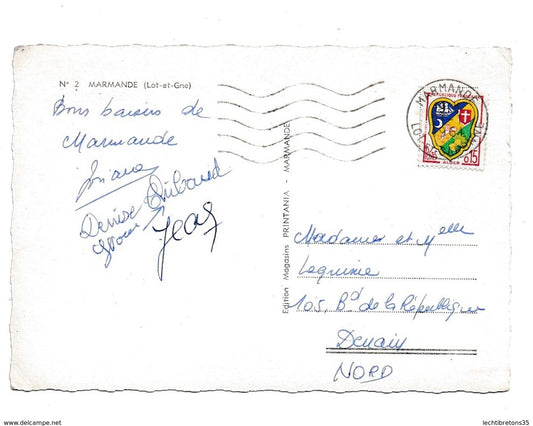 N° 2 MARMANDE (Lot-et-Gne)
Bons baisers de
Marmande
Denise
Jean
Edition Magasins PRINTANIA - MARMANDE
MARMANDE
REPUBLIQUE FRANÇAISE
0,15
ALGER
Madame et Melle
Lequime
105, Bd de la République
Denain
NORD
www.delcampe.net
lechtibretons35